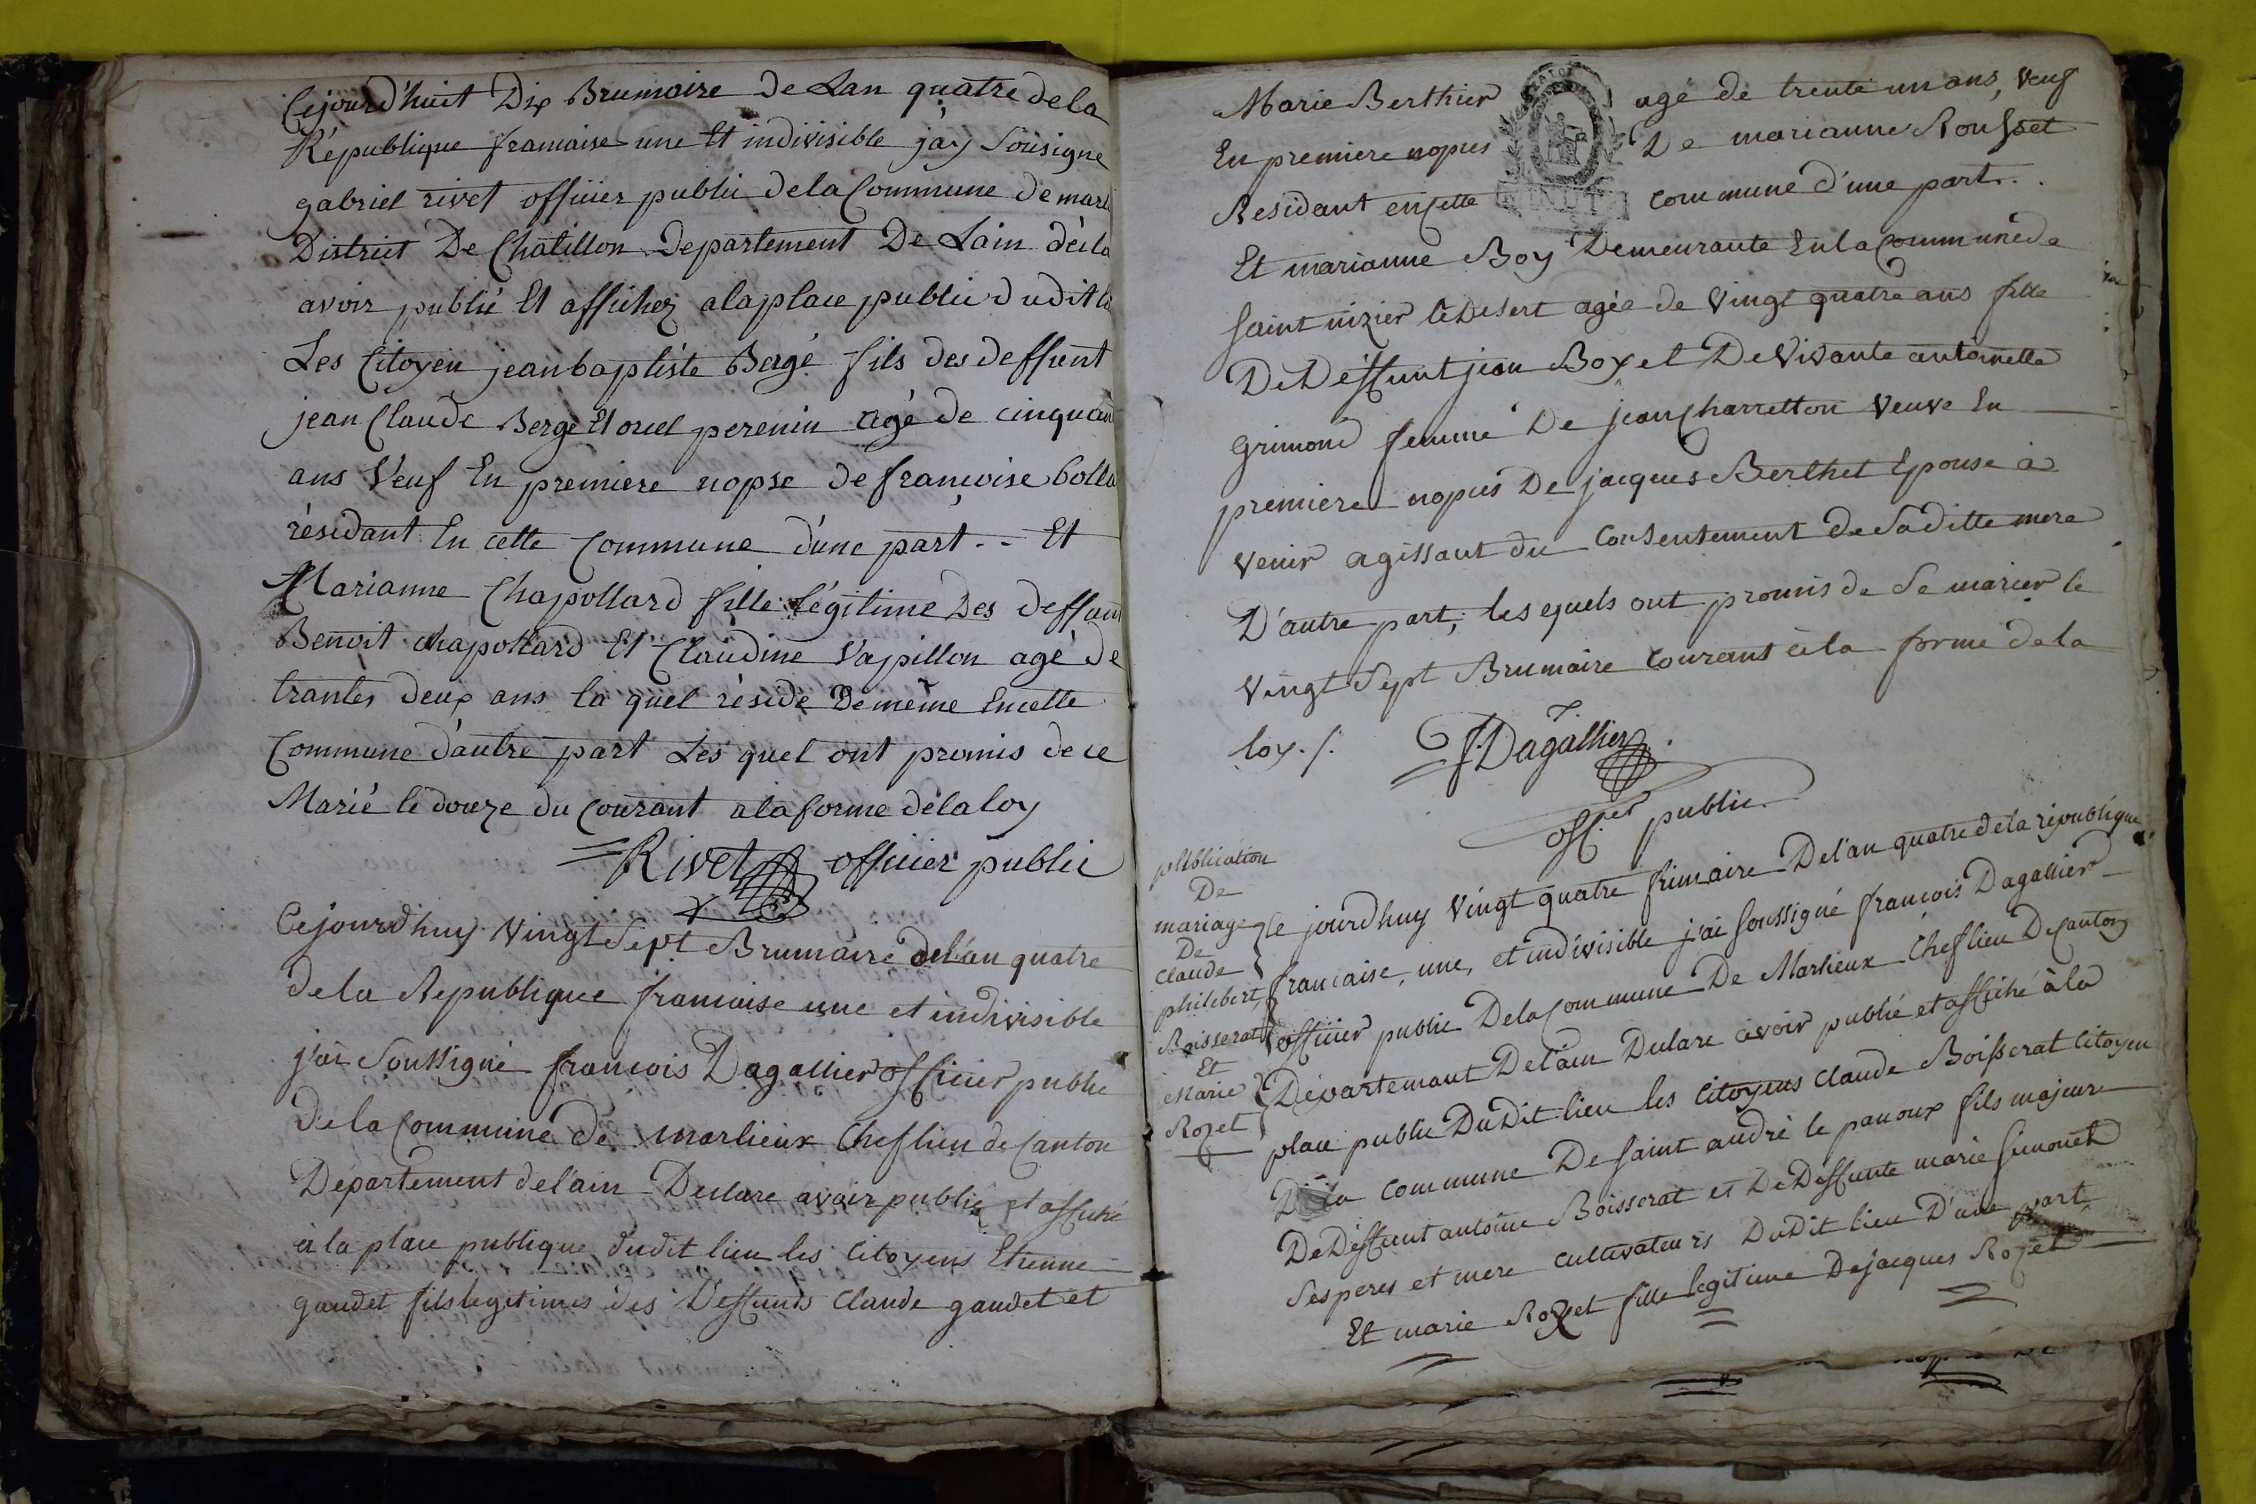 Cejourd'huit Dix Brumaire de Lan quatre de la
République framaise une Et indivisible jáy Sousigne
gabriel rivet officier public de la Commune de marl
District De Chatillon Departement De Lain décla
avoir publié Et affichez a la place public dudit li
Les Citoyen jean baptiste Bergé fils des deffunt
jean Claude Berge Et oriel perenin agé de cinquan
ans Veuf En premiere nopse de francoise bolla
résidant En cette Commune d'une part .. Et
Marianne Chapollard fille légitime Des deffun
Benoit chapollard Et Claudine Vapillon agé de
trantes deux ans la quel réside De même En cette
Commune d'autre part Les quel ont promis de ce
Marié le douze du Courant a la forme de la loy
Rivet officier public
Cejourdhuy Vingt Sept Brumaire de l'an quatre
de la Republique framaise une et indivisible
j'ai Soussigné francois Dagallier officier public
de la Commune de marlieux Chef lieu de Canton
Département de l'ain Declare avoir publié et affiché
à la place publique dudit lieu les Citoyens Etienne
gaudet fils legitimes des Deffunts Claude gaudet et
Marie Berthier agé de trente un ans, Veuf
En premiere nopces De marianne Rousset
Residant en cette commune d'une part..
Et marianne Boy Demeurante En la commune de
Saint nizier le Desert agée de Vingt quatre ans fille
De Deffunt jean Boy et De Vivante antoinette
Grimond femme De jean Charretton Veuve En
premiere nopces De jacques Berthet Epouse à
Venir agissant du Consentement de Saditte mere
D'autre part, les equels ont promis de Se marier le
Vingt Sept Brumaire Courant à la forme de la
loy ./.
f. Dagallier
off.er public
publication
De
mariage
De
Claude
philebert
Boisserat
Et
Marie
Rozet
Ce jourdhuy Vingt quatre frimaire De l'an quatre de la république
francaise, une, et indivisible j'ai Soussigné francois Dagallier
officier public De la Commune De Marlieux Chef lieu De canton
Départemant De l'ain Declare avoir publié et affiché à la
place public Dudit lieu les Citoyens Claude Boisserat Citoyen
De la commune De Saint andré le panoux fils majeur
De Deffunt antoine Boisserat et De Deffunte marie Simonet
Ses peres et mere cultivateurs Dudit lieu D'une part,
Et marie Rozet fille legitime De jacques Rozet